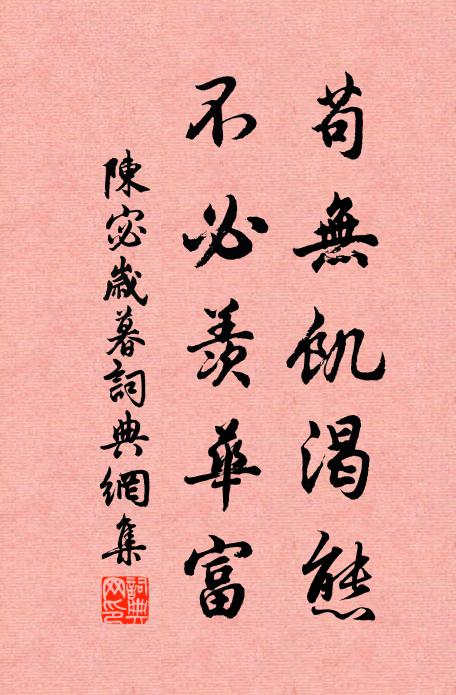 苟無飢渴態
不必羨華富
陳宓歲暮詞典網集
詞典網印